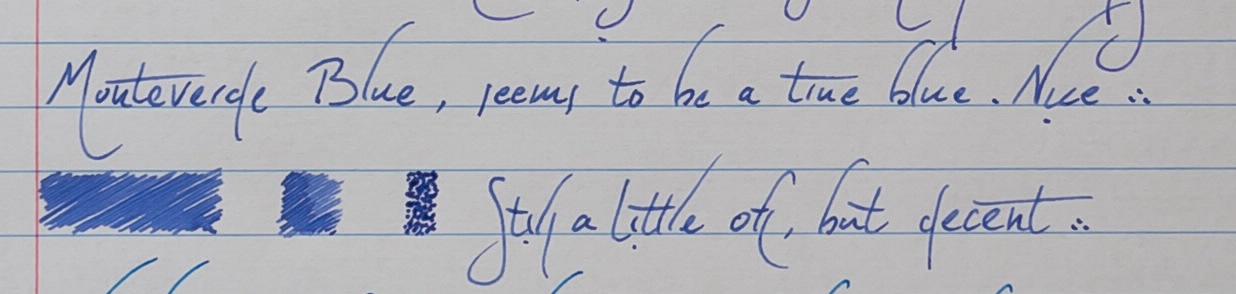 Monteverde Blue, seems to be a true blue. Nice :.
a little of, but decent :.